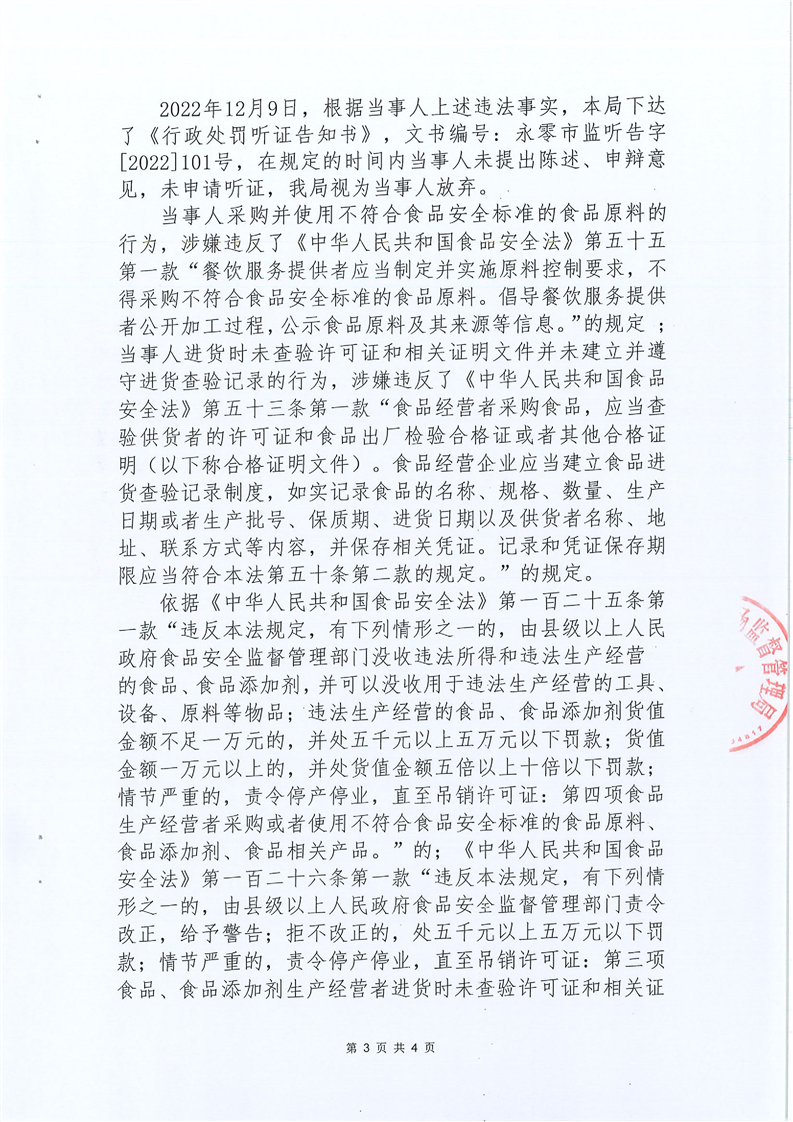 2022年12月9日，根据当事人上述违法事实，本局下达
了《行政处罚听证告知书》，文书编号：永零市监听告字
[2022]101号，在规定的时间内当事人未提出陈述、申辩意
见，未申请听证，我局视为当事人放弃。
当事人采购并使用不符合食品安全标准的食品原料的
行为，涉嫌违反了《中华人民共和国食品安全法》第五十五
第一款“餐饮服务提供者应当制定并实施原料控制要求，不
得采购不符合食品安全标准的食品原料。倡导餐饮服务提供
者公开加工过程，公示食品原料及其来源等信息。”的规定；
当事人进货时未查验许可证和相关证明文件并未建立并遵
守进货查验记录的行为，涉嫌违反了《中华人民共和国食品
安全法》第五十三条第一款“食品经营者采购食品，应当查
验供货者的许可证和食品出厂检验合格证或者其他合格证
明（以下称合格证明文件）。食品经营企业应当建立食品进
货查验记录制度，如实记录食品的名称、规格、数量、生产
日期或者生产批号、保质期、进货日期以及供货者名称、地
址、联系方式等内容，并保存相关凭证。记录和凭证保存期
限应当符合本法第五十条第二款的规定。”的规定。
依据《中华人民共和国食品安全法》第一百二十五条第
一款“违反本法规定，有下列情形之一的，由县级以上人民
政府食品安全监督管理部门没收违法所得和违法生产经营
的食品、食品添加剂，并可以没收用于违法生产经营的工具、
设备、原料等物品；违法生产经营的食品、食品添加剂货值
金额不足一万元的，并处五千元以上五万元以下罚款；货值
金额一万元以上的，并处货值金额五倍以上十倍以下罚款；
情节严重的，责令停产停业，直至吊销许可证：第四项食品
生产经营者采购或者使用不符合食品安全标准的食品原料、
食品添加剂、食品相关产品。”的；《中华人民共和国食品
安全法》第一百二十六条第一款“违反本法规定，有下列情
形之一的，由县级以上人民政府食品安全监督管理部门责令
改正，给予警告；拒不改正的，处五千元以上五万元以下罚
款；情节严重的，责令停产停业，直至吊销许可证：第三项
食品、食品添加剂生产经营者进货时未查验许可证和相关证
第 3 页 共 4 页
监督管理局
04017